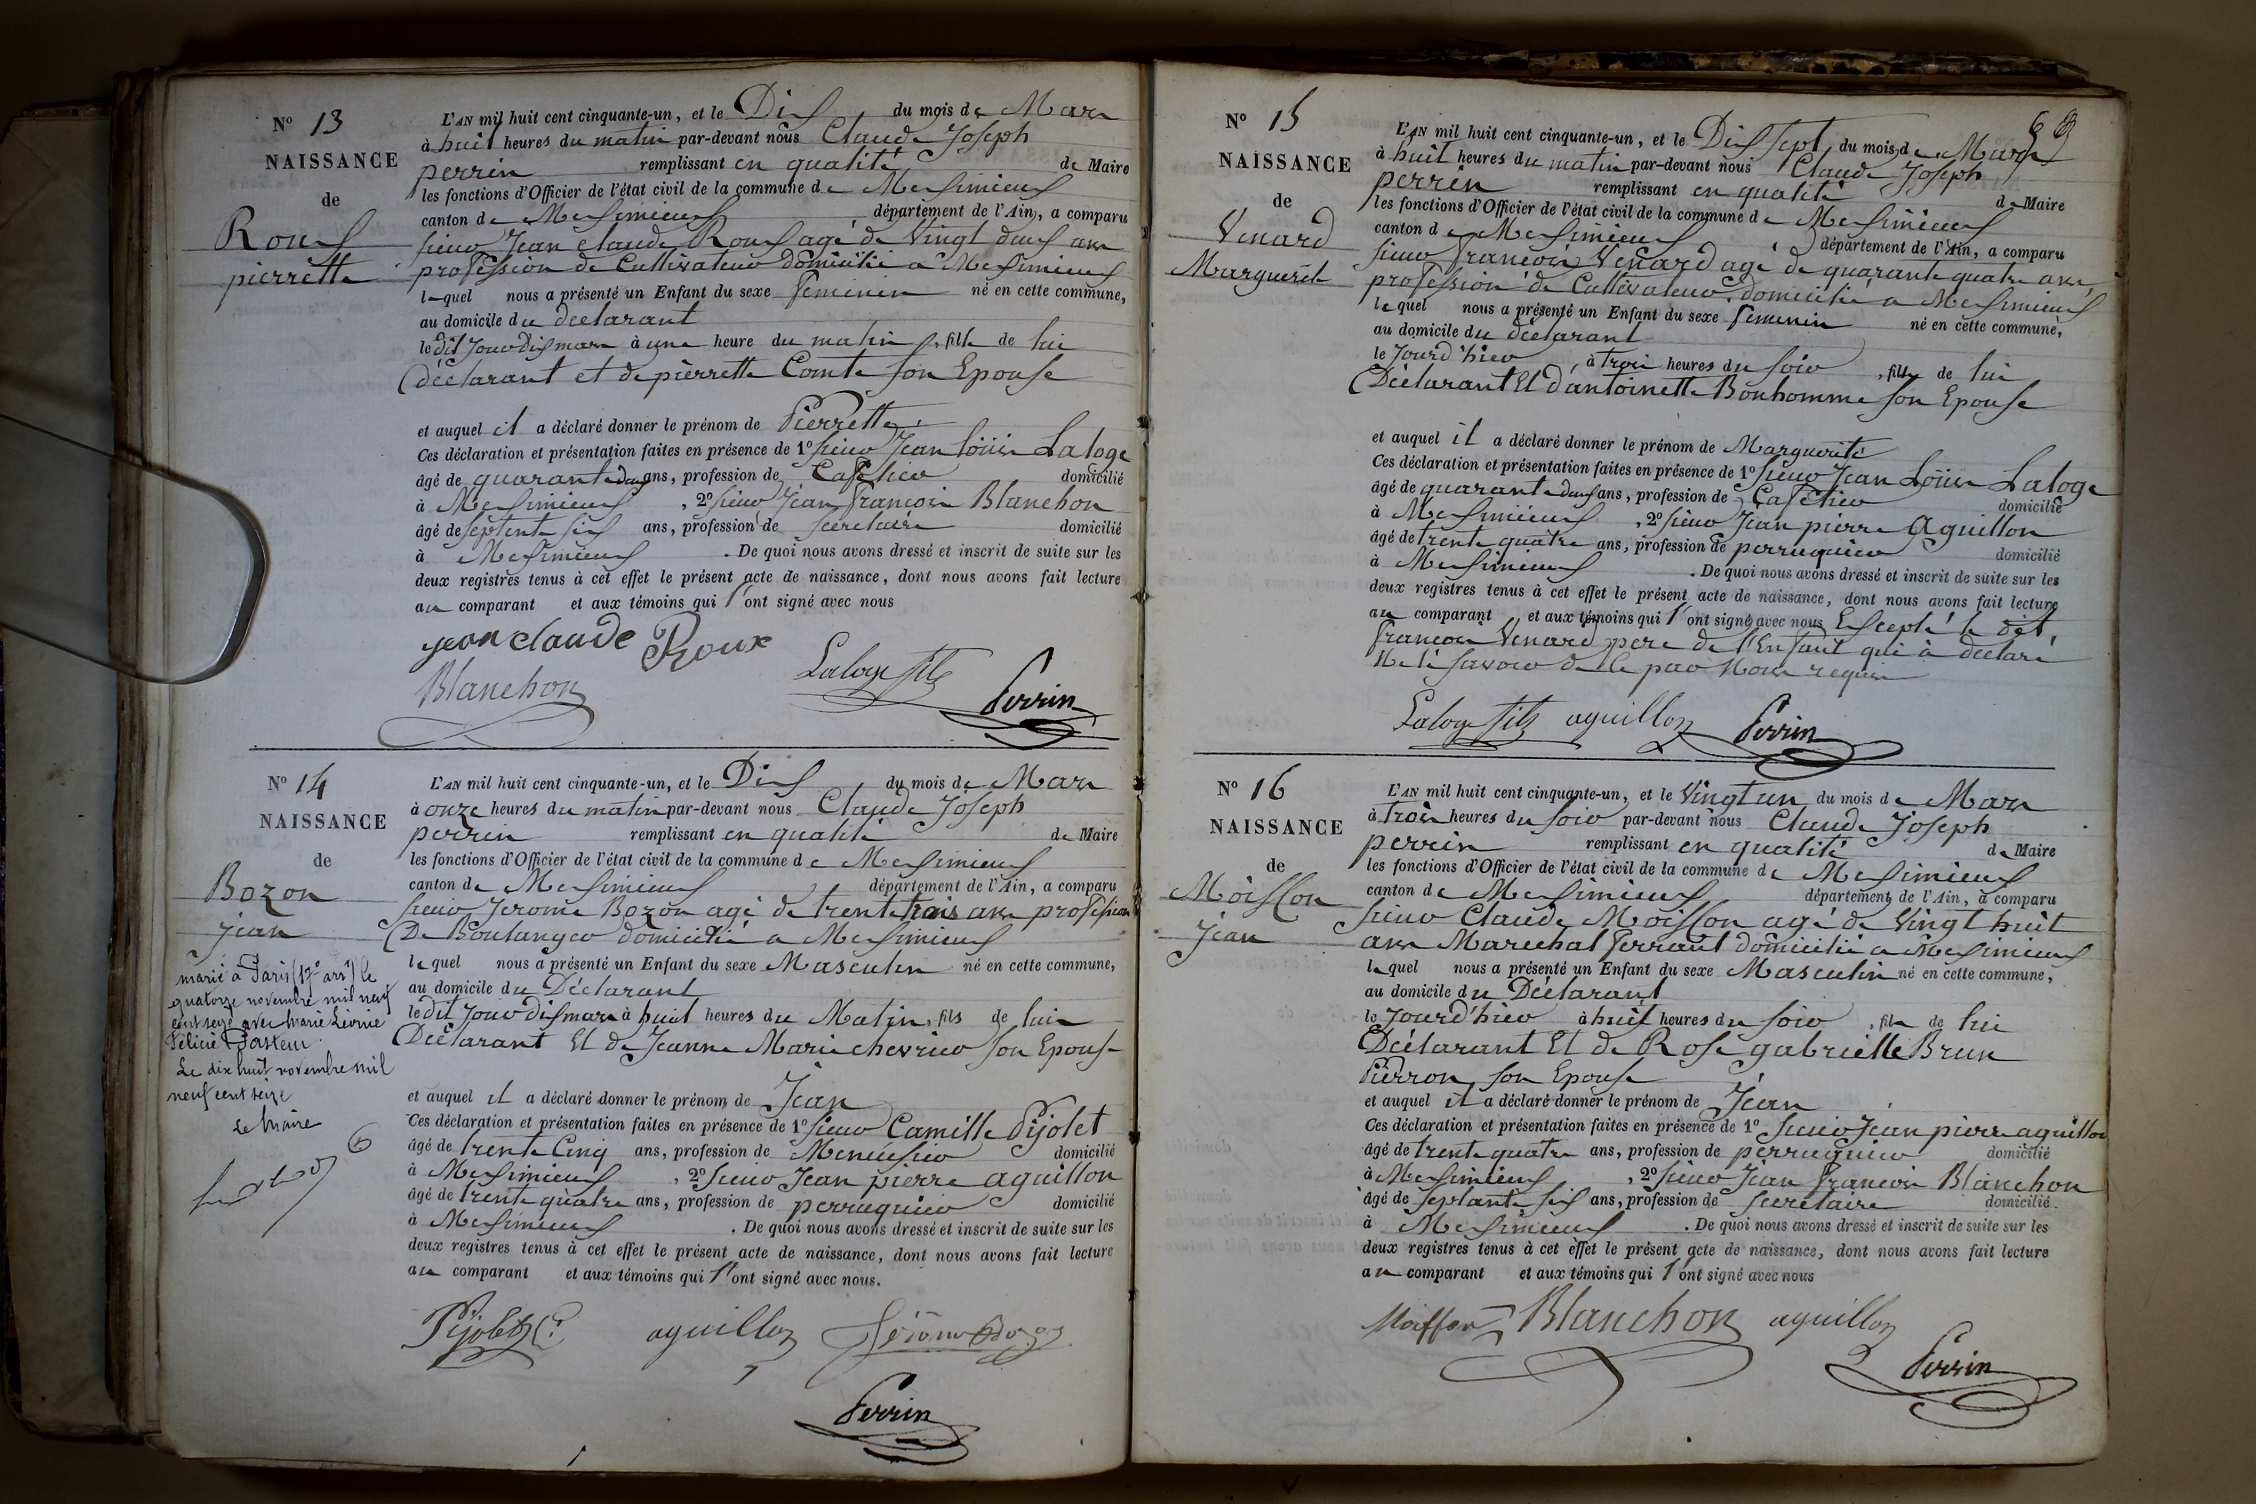 N° 13
NAISSANCE
de
Roux
pierrette
L'AN mil huit cent cinquante-un, et le Dix du mois de Mars
à huit heures du matin par-devant nous Claude Joseph
perrin remplissant en qualité de Maire
les fonctions d'Officier de l'état civil de la commune de Meximieux
canton de Meximieux département de l'Ain, a comparu
sieur Jean claude Roux agé de Vingt deux ans
profession de Cultivateur domicilié a Meximieux
lequel nous a présenté un Enfant du sexe femenin né en cette commune,
au domicile du declarant
le dit jour dix mars à une heure du matin, fille de lui
déclarant et de pierrette Comte son Epouse
et auquel il a déclaré donner le prénom de Pierrette
Ces déclaration et présentation faites en présence de 1° sieur Jean Loüis Laloge
âgé de quarante deux ans, profession de Cafetier domicilié
à Meximieux, 2° sieur Jean francois Blanchon
âgé de septente six ans, profession de secretaire domicilié
à Meximieux. De quoi nous avons dressé et inscrit de suite sur les
deux registres tenus à cet effet le présent acte de naissance, dont nous avons fait lecture
au comparant et aux témoins qui l'ont signé avec nous
jean claude Roux
Laloge fils
Blanchon
Perrin
N° 14
NAISSANCE
de
Bozon
jean
marié à Paris (17e arrt) le
quatorze novembre mil neuf
cent seize avec Marie Léonie
Félicie Pasteur.
Le dix huit novembre mil
neuf cent seize
Le Maire
L'AN mil huit cent cinquante-un, et le Dix du mois de Mars
à onze heures du matin par-devant nous Claude Joseph
perrin remplissant en qualité de Maire
les fonctions d'Officier de l'état civil de la commune de Meximieux
canton de Meximieux département de l'Ain, a comparu
sieur Jerome Bozon agé de trente trois ans profession
De Boulanger domicilié a Meximieux
lequel nous a présenté un Enfant du sexe Masculin né en cette commune,
au domicile du Déclarant
le dit jour dix mars à huit heures du Matin, fils de lui
Déclarant Et de Jeanne Marie chevrier son Epouse
et auquel il a déclaré donner le prénom de Jean
Ces déclaration et présentation faites en présence de 1° sieur Camille Pijolet
âgé de trente Cinq ans, profession de Menuisier domicilié
à Meximieux, 2° sieur Jean pierre aguillon
âgé de trente quatre ans, profession de perruquier domicilié
à Meximieux. De quoi nous avons dressé et inscrit de suite sur les
deux registres tenus à cet effet le présent acte de naissance, dont nous avons fait lecture
au comparant et aux témoins qui l'ont signé avec nous.
Pijolet C. aguillon Jérome Bozon
Perrin
N° 15
NAISSANCE
de
Venard
Marguerite
L'AN mil huit cent cinquante-un, et le Dix sept du mois de Mars
à huit heures du matin par-devant nous Claude Joseph
perrin remplissant en qualité de Maire
les fonctions d'Officier de l'état civil de la commune de Meximieux
canton de Meximieux département de l'Ain, a comparu
sieur francois Venard agé de quarante quatre ans,
profession de Cultivateur, domicilié a Meximieux
lequel nous a présenté un Enfant du sexe femenin né en cette commune,
au domicile du déclarant
le Jourd'hier à trois heures du soir, fille de lui
Déclarant Et d'antoinette Bonhomme son Epouse
et auquel il a déclaré donner le prénom de Marguerite
Ces déclaration et présentation faites en présence de 1° sieur Jean Loüis Laloge
âgé de quarante deux ans, profession de Cafetier domicilié
à Meximieux, 2° sieur Jean pierre aguillon
âgé de trente quatre ans, profession de perruquier domicilié
à Meximieux. De quoi nous avons dressé et inscrit de suite sur les
deux registres tenus à cet effet le présent acte de naissance, dont nous avons fait lecture
au comparant et aux témoins qui l'ont signé avec nous Excepté le dit
francois Venard pere de l'Enfant qui à declaré
Ne le savoir de ce par Nous requis
Laloge fils aguillon Perrin
N° 16
NAISSANCE
de
Moisson
jean
L'AN mil huit cent cinquante-un, et le Vingt un du mois de Mars
à trois heures du soir par-devant nous Claude Joseph
perrin remplissant en qualité de Maire
les fonctions d'Officier de l'état civil de la commune de Meximieux
canton de Meximieux département de l'Ain, a comparu
sieur Claude Moisson agé de Vingt huit
ans Marechal ferrant domicilié a Meximieux
lequel nous a présenté un Enfant du sexe Masculin né en cette commune,
au domicile du Déclarant
le Jourd'hier à huit heures du soir, fils de lui
Déclarant Et de Rose gabrielle Brun
Pierron son Epouse
et auquel il a déclaré donner le prénom de Jean
Ces déclaration et présentation faites en présence de 1° sieur Jean pierre aguillon
âgé de trente quatre ans, profession de perruquier domicilié
à Meximieux, 2° sieur Jean francois Blanchon
âgé de septante six ans, profession de secretaire domicilié
à Meximieux. De quoi nous avons dressé et inscrit de suite sur les
deux registres tenus à cet effet le présent acte de naissance, dont nous avons fait lecture
au comparant et aux témoins qui l'ont signé avec nous
Moisson Blanchon aguillon
Perrin